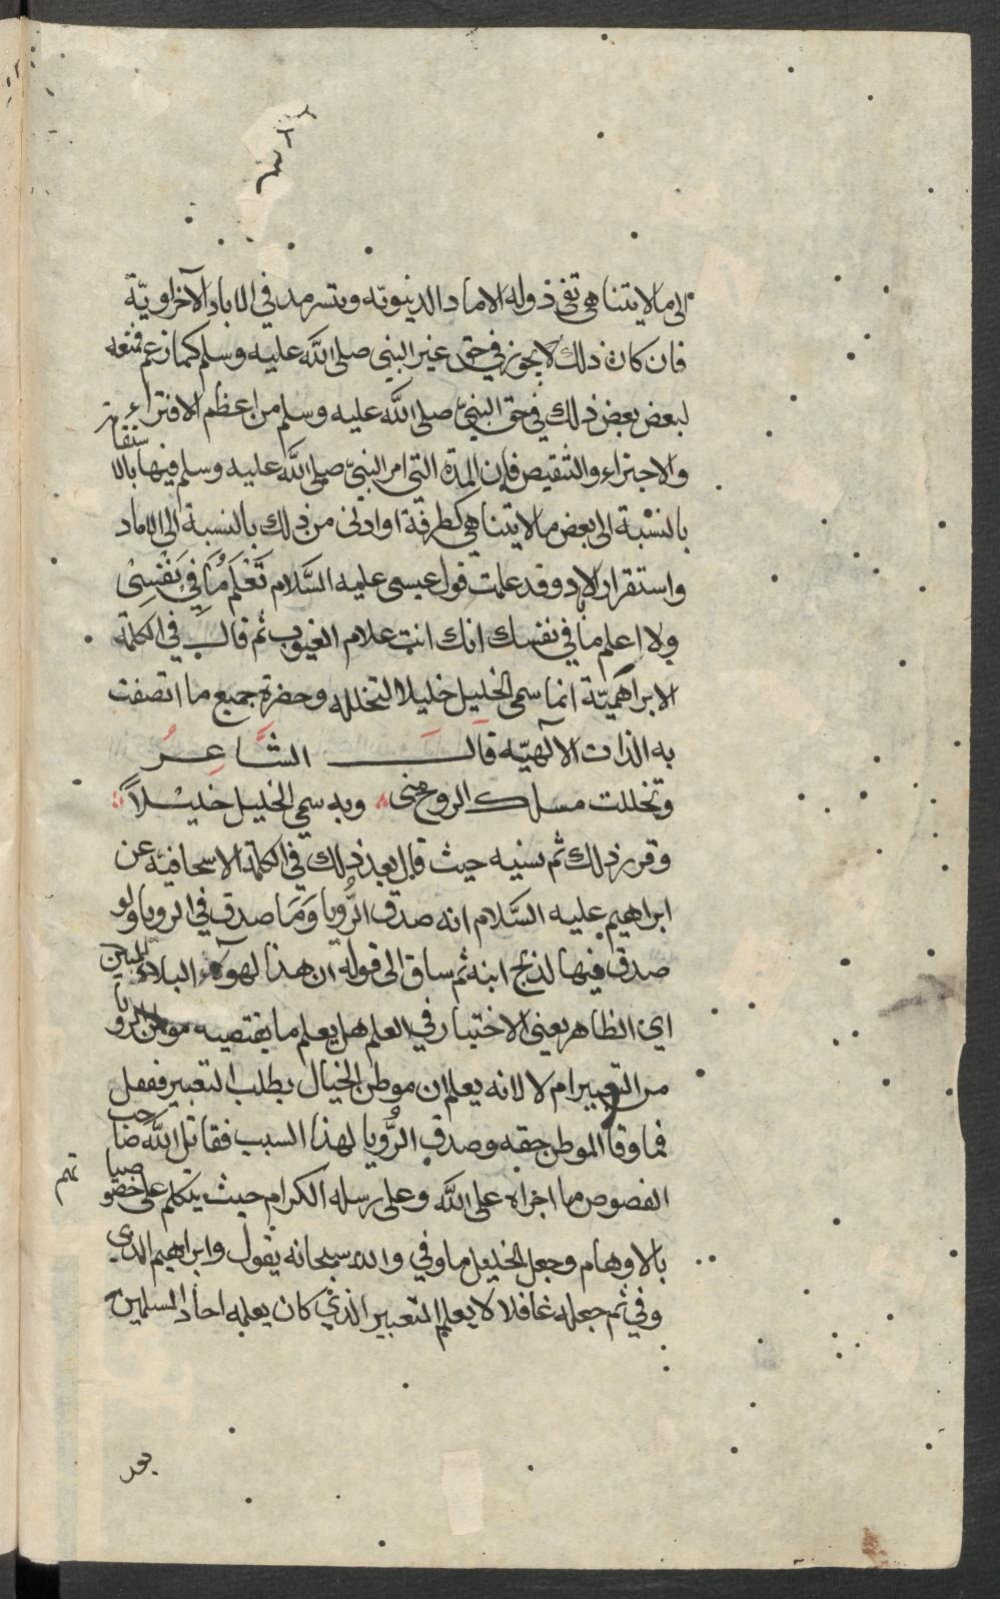 الى ما لا يتناهى تفنى ذوله الاماد الدينويه ويتسرمد في الاباد الآخراويّة
فان كان ذلك لا يجوز في حق غير النبي صلى الله عليه وسلم كما زعم فمنعه
لبعض بعض ذلك في حق النبيّ صلى الله عليه وسلم من اعظم الافتراء
والاجتراء والتنقيص فإن المدة التي امر النبيّ صلى الله عليه وسلم فيها بالا ستغفار
بالنسْبة الى بعض ما لا يتناهى كطرفة او ادنى من ذلك بالنسبة الى الاماد
واستقرار الابد وقد علمت قول عيسى عليه السَّلام تَعْلَم مَا فِي نَفْسِىْ
ولا اعلم ما في نفسك انك انت علام الغيوب ثم قال في الكلمة
الابراهميّة انما سمى الخليل خليلا لتخلله وحضرة جميع ما اتصفت
به الذات الآلهيّه قال الشَّاعِرُ
وتخللت مسلك الروح منى وبه سمى الخليل خليْلاً
وقرر ذلك ثم نسيه حيث قال بعد ذلك في الكلمة الاسحاقيّه عن
ابراهيم عليه السَّلام انه صدق الرُّويا وَمَا صدق في الرويا ولو
صدق فيها لذبح ابنه ثم ساق الى قوله ان هذا لهو البلاء المبين
اي الظاهر يعنى الاختبار في العلم هل يعلم ما يقتضيه موطن الرويا
من التعبير ام لا لانه يعلم ان موطن الخيال بطلب التعبير فغفل
فما وفا الموطن حقه وصدق الرُّويا لهذا السبب فقاتل الله صاحب
الفصوص ما اجراه على الله وعلى رسله الكرام حيث يتكلم على خصوصياتهم
بالاوهام وجعل الخليل ما وفي والله سبحانه يقول وابراهيم الذي
وفي ثم جعله غافلا لا يعلم التعبير الذي كان يعلمه احاد المسلمين